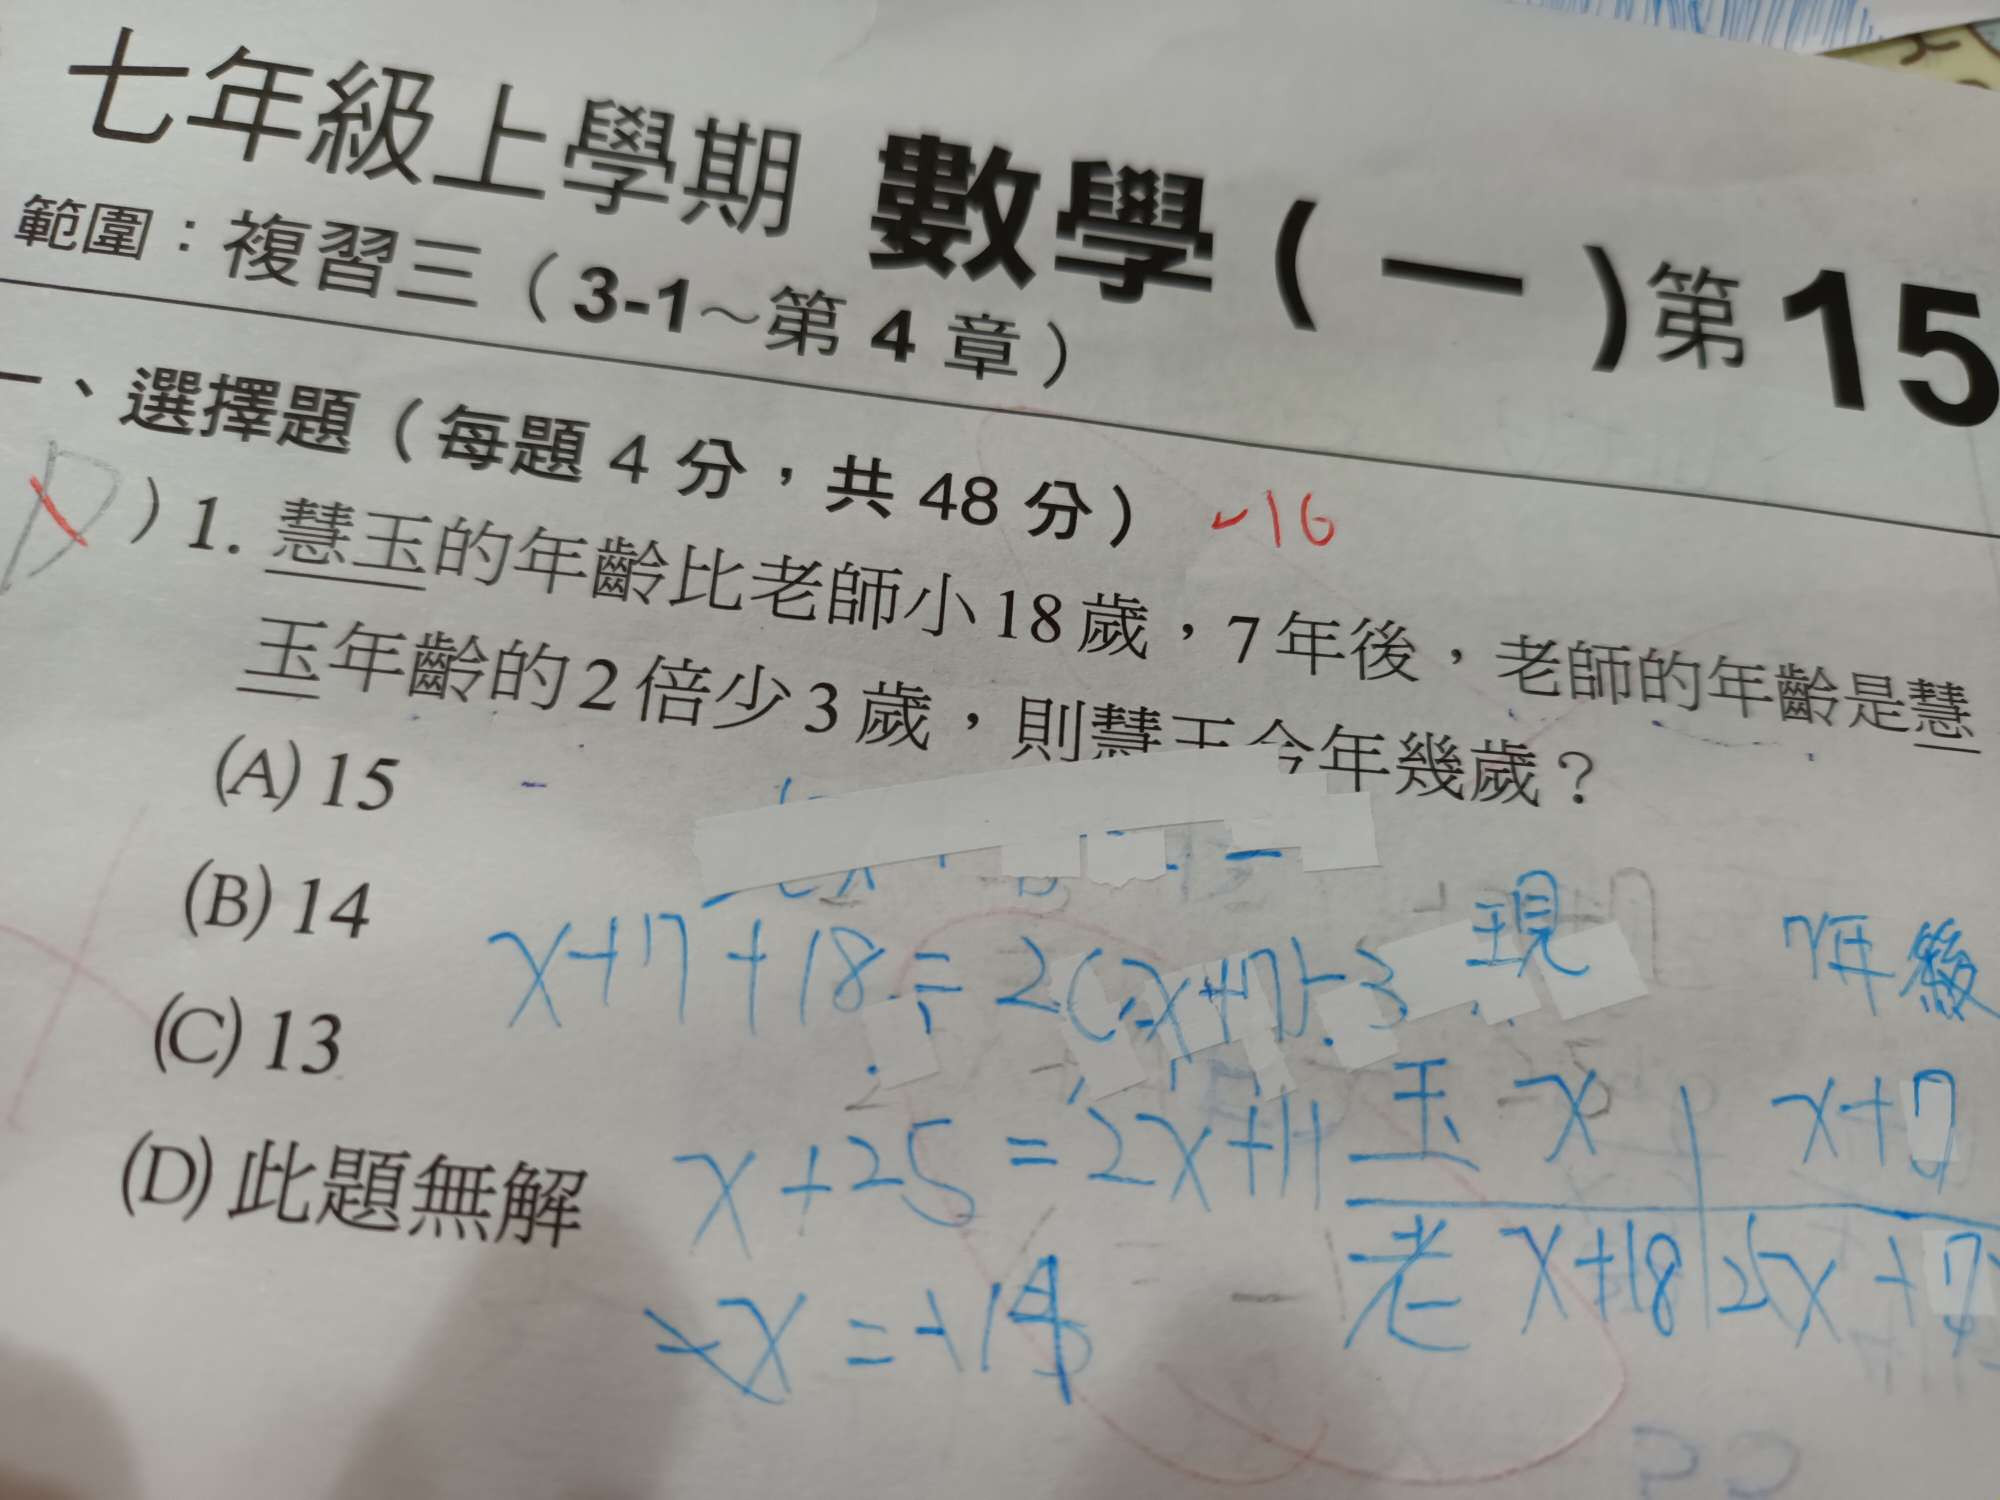 七年級上學期 數學(一)第15
範圍：複習三（3-1～第4章）
一、選擇題（每題4分，共48分） -16
D ）1. 慧玉的年齡比老師小18歲，7年後，老師的年齡是慧
玉年齡的2倍少3歲，則慧玉今年幾歲？
(A) 15
(B) 14
(C) 13
(D) 此題無解
x+7+18=2(x+7)-3
x+25=2x+11
-x=-14
現 7年後
玉 x x+7
老 x+18 2x+7